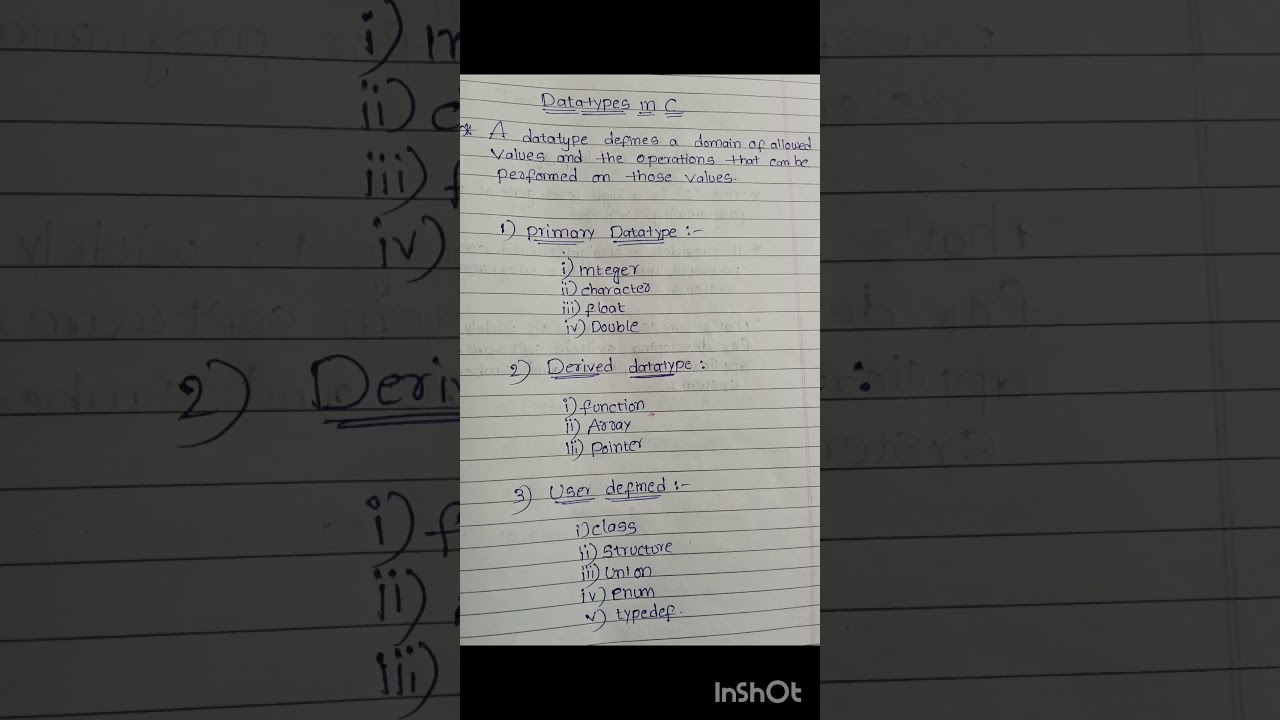 Datatypes in C
* A datatype defines a domain of allowed
Values and the operations that can be
performed on those values.
1) primary Datatype :-
i) integer
ii) character
iii) float
iv) Double
2) Derived datatype :
i) function
ii) Array
iii) pointer
3) User defined :-
i) class
ii) Structure
iii) Union
iv) enum
v) typedef.
InShOt